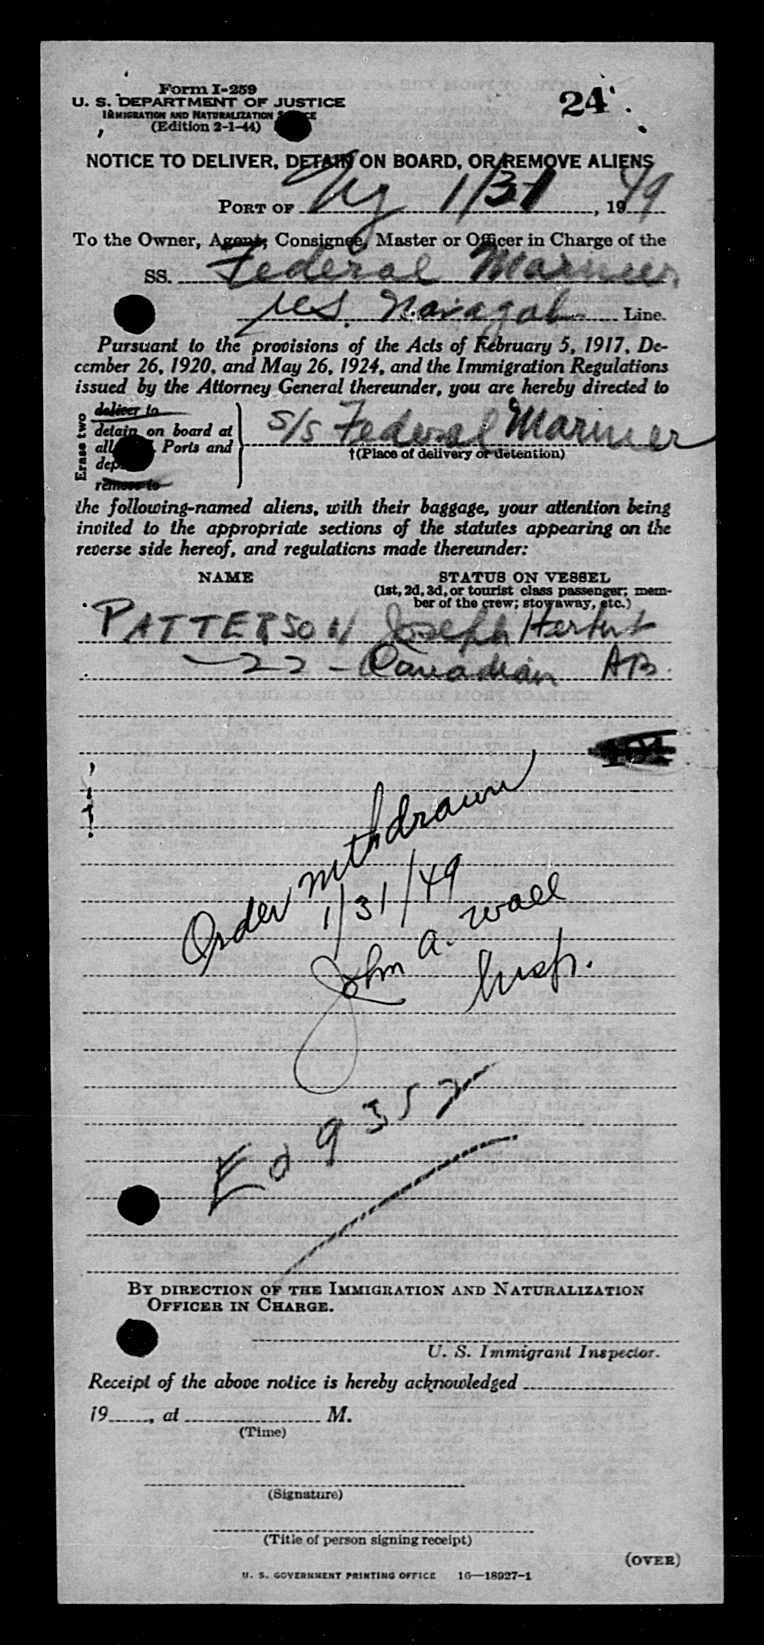 Form I-259
U. S. DEPARTMENT OF JUSTICE
IMMIGRATION AND NATURALIZATION
(Edition 2-1-44)
24
NOTICE TO DELIVER, DETAIN ON BOARD, OR REMOVE ALIENS
PORT OF NY 1/31, 1949
To the Owner, Agent, Consignee, Master or Officer in Charge of the
SS. Federal Mariner
Line.
Pursuant to the provisions of the Acts of February 5, 1917, De-
cember 26, 1920, and May 26, 1924, and the Immigration Regulations
issued by the Attorney General thereunder, you are hereby directed to
Erase two
deliver to
detain on board at
all Ports and
remove to
S/S Federal Mariner
†(Place of delivery or detention)
the following-named aliens, with their baggage, your attention being
invited to the appropriate sections of the statutes appearing on the
reverse side hereof, and regulations made thereunder:
NAME STATUS ON VESSEL
(1st, 2d, 3d, or tourist class passenger; mem-
ber of the crew; stowaway, etc.)
PATTERSON Joseph Herbert
-22- Canadian AB.
Order withdrawn
1/31/49
John A. Wall
Insp.
Ed 9352
BY DIRECTION OF THE IMMIGRATION AND NATURALIZATION
OFFICER IN CHARGE.
U. S. Immigrant Inspector.
Receipt of the above notice is hereby acknowledged
19____, at ____ M.
(Time)
(Signature)
(Title of person signing receipt)
(OVER)
U. S. GOVERNMENT PRINTING OFFICE 16—18927-1